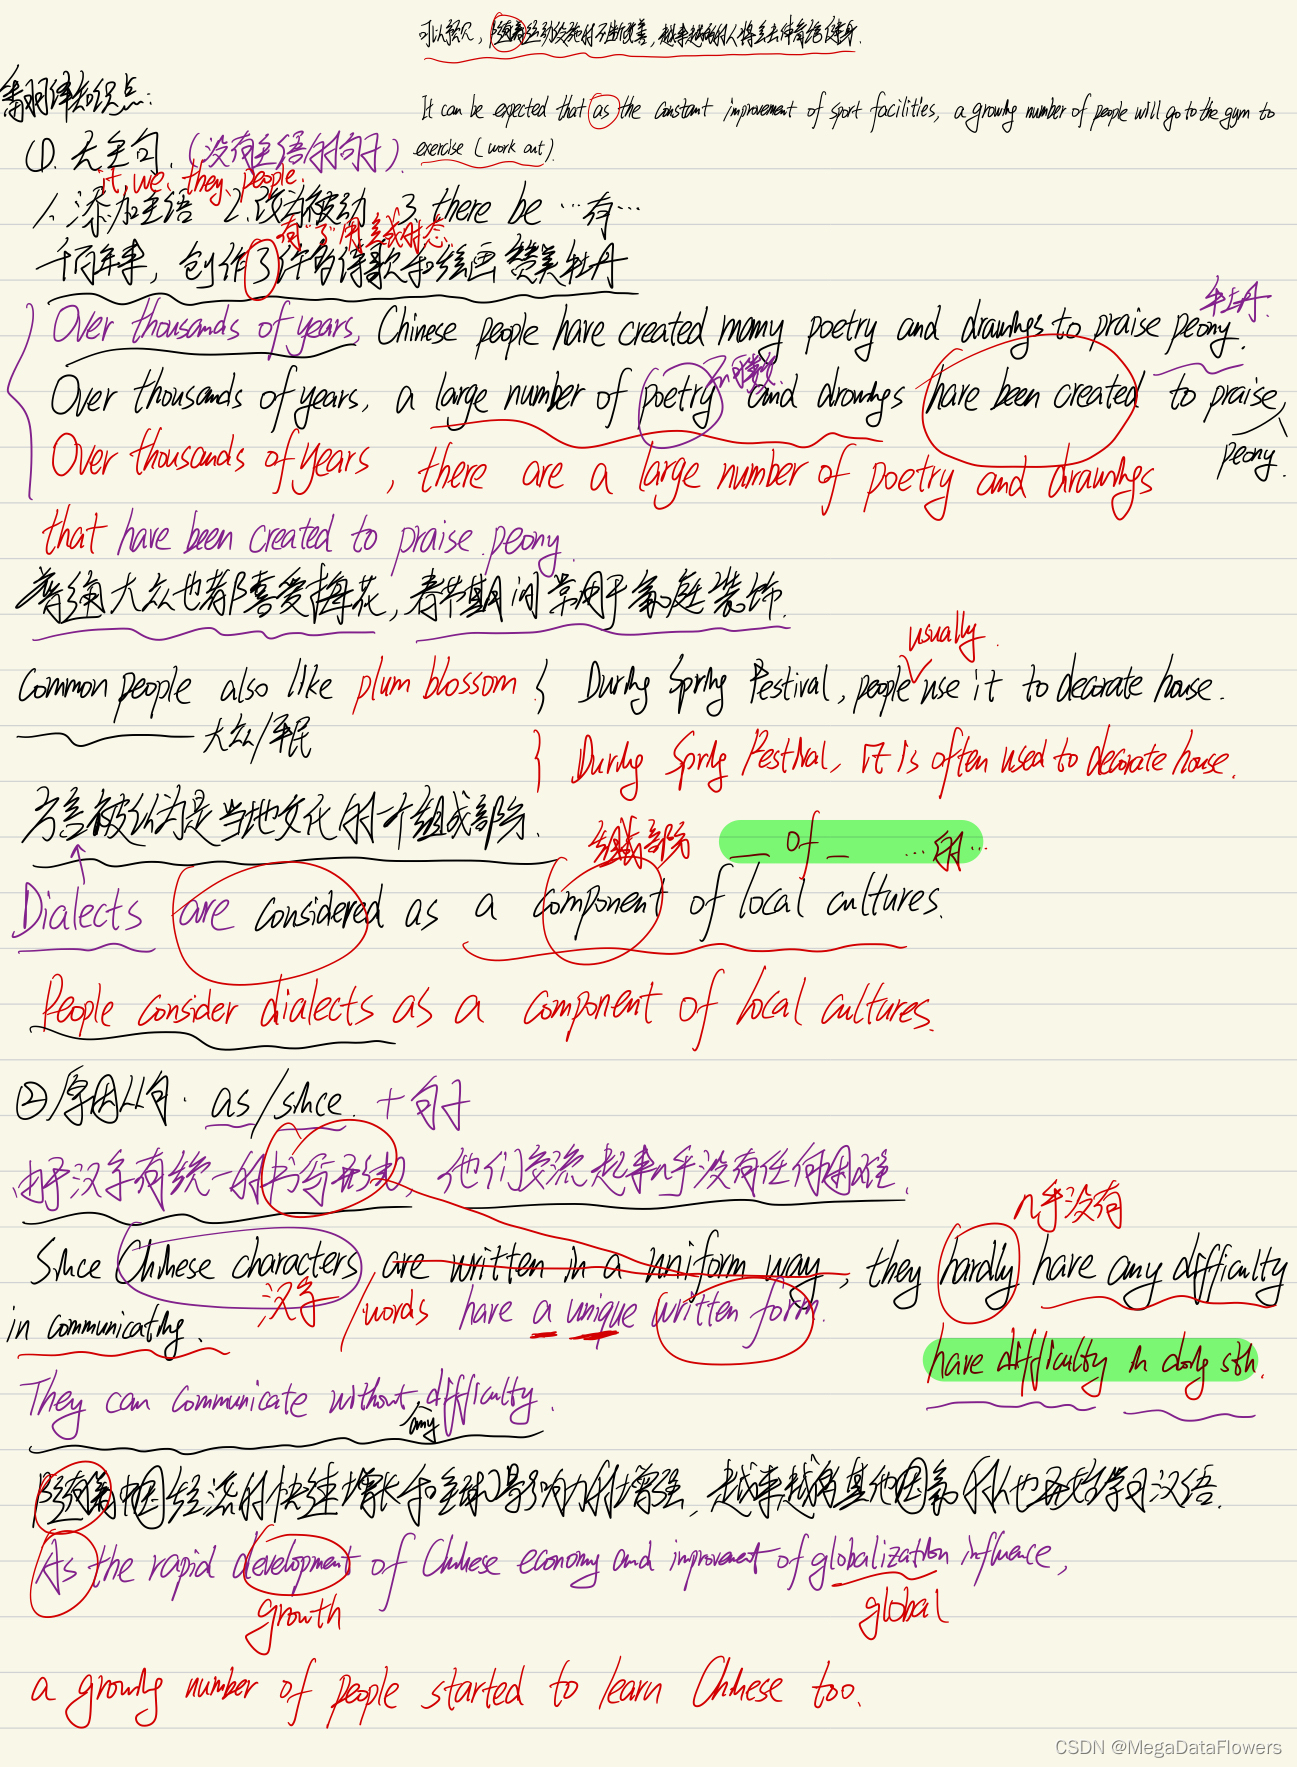 可以预见，随着运动设施的不断改善，越来越多的人将会去体育馆健身.
It can be expected that as the constant improvement of sport facilities, a growing number of people will go to the gym to
exercise (work out).
翻译知识点:
①. 无主句.（没有主语的句子）.
it, we, they, people.
1. 添加主语 2. 改为被动 3. there be …有…
有"了"用完成时态.
千百年来，创作了许多诗歌和绘画赞美牡丹
牡丹.
Over thousands of years, Chinese people have created many poetry and drawings to praise peony.
不可数.
Over thousands of years, a large number of poetry and drawings have been created to praise
peony.
Over thousands of years, there are a large number of poetry and drawings
that have been created to praise peony.
普通大众也都喜爱梅花, 春节期间常用于家庭装饰.
usually
Common people also like plum blossom. During Spring Festival, people use it to decorate house.
大众/平民
During Spring Festival, it is often used to decorate house.
方言被认为是当地文化的一个组成部分.
组成部分 __ of __ …的…
Dialects are considered as a component of local cultures.
People consider dialects as a component of local cultures.
② 原因从句. as/since. + 句子
由于汉字有统一的书写形式, 他们交流起来几乎没有任何困难.
几乎没有
Since Chinese characters are written in a uniform way, they hardly have any difficulty
汉字 /words have a unique written form.
in communicating.
have difficulty in doing sth.
They can communicate without difficulty.
any
随着中国经济的快速增长和全球影响力的增强, 越来越多其他国家的人也开始学习汉语.
As the rapid development of Chinese economy and improvement of globalization influence,
growth
global
a growing number of people started to learn Chinese too.
CSDN @MegaDataFlowers